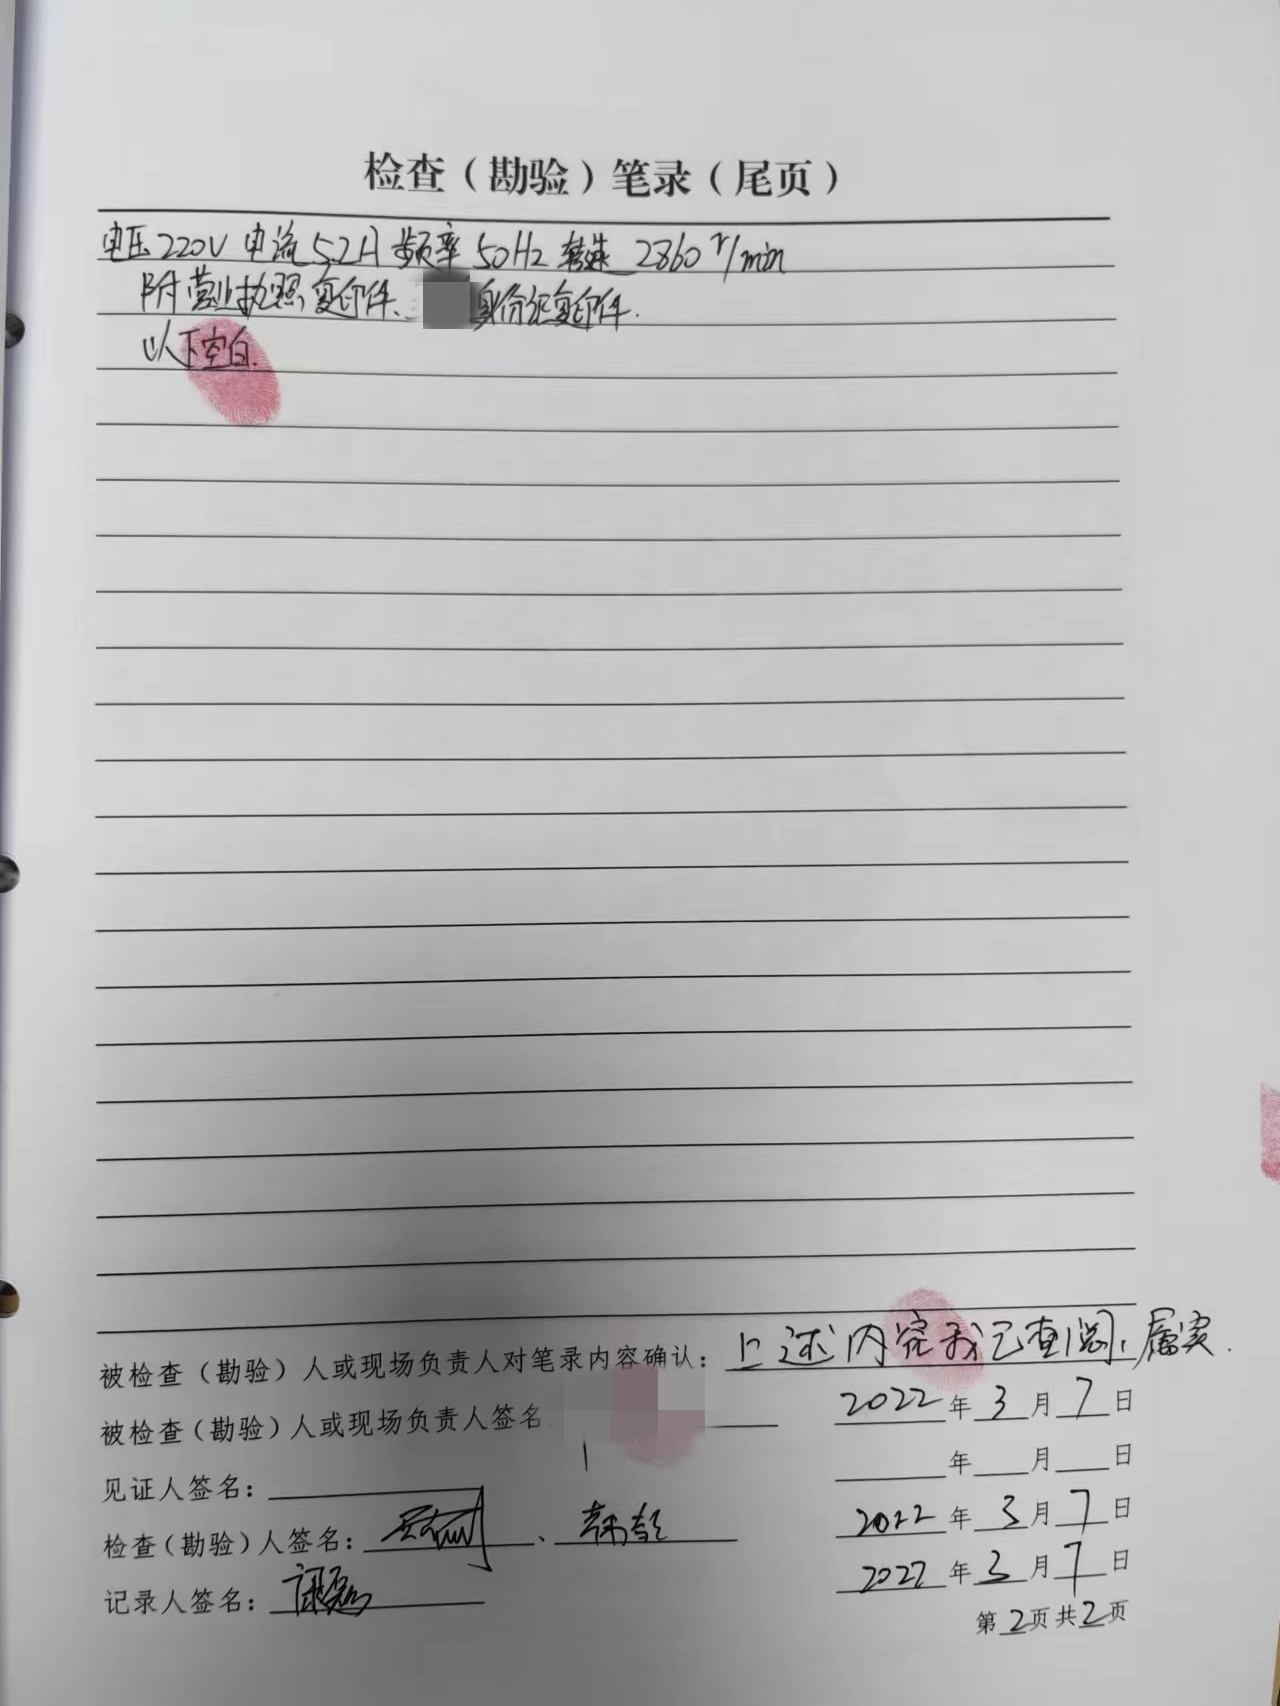 检查（勘验）笔录（尾页）
电压220V 电流5.2A 频率50Hz 转速 2860r/min
附营业执照复印件、身份证复印件.
以下空白.
被检查（勘验）人或现场负责人对笔录内容确认：上述内容我已查阅，属实.
被检查（勘验）人或现场负责人签名 2022年3月7日
见证人签名： 年 月 日
检查（勘验）人签名： 、 2022年3月7日
记录人签名： 2022年3月7日
第2页共2页